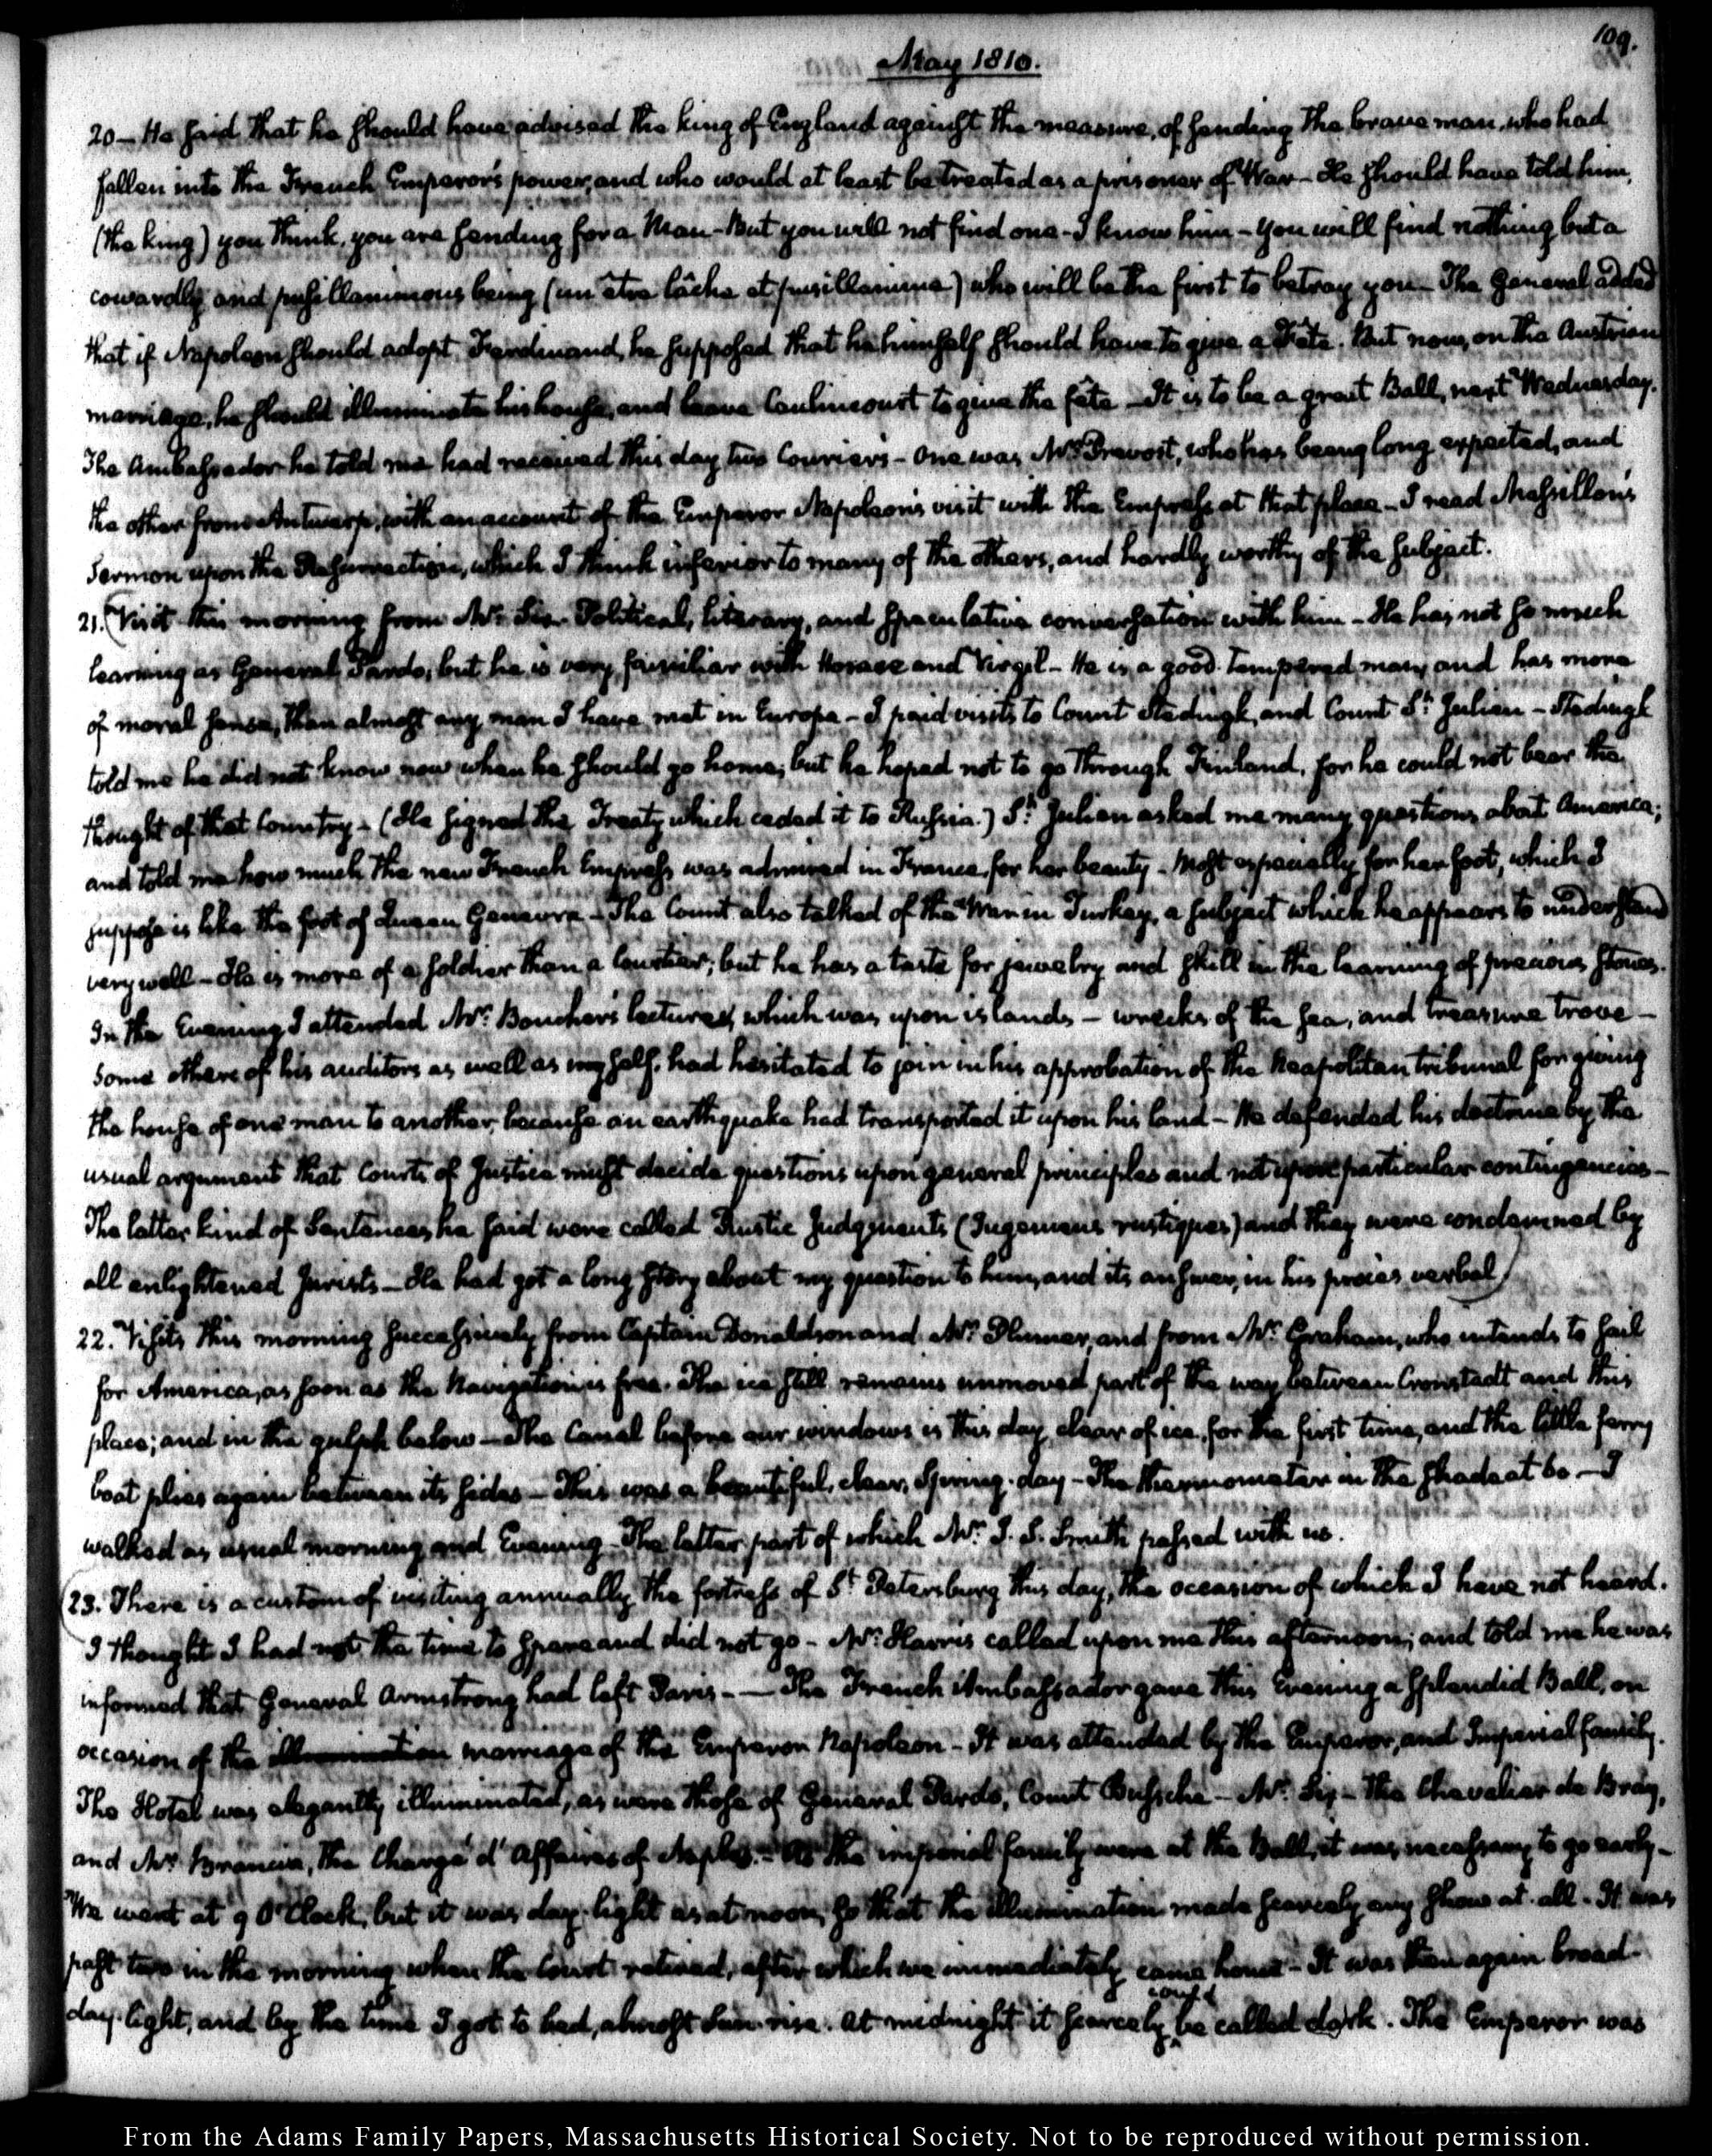 109.
May 1810.
20 – He said that he should have advised the king of England against the measure, of sending the brave man, who had
fallen into the French Emperor's power, and who would at least be treated as a prisoner of War – He should have told him,
(the king) you think, you are sending for a Man – But you will not find one – I know him – You will find nothing but a
cowardly and pusillanimous being (un être lâche et pusillanime) who will be the first to betray you – The General added
that if Napoleon should adopt Ferdinand, he supposed that he himself should have to give a Fête. But now, on the Austrian
marriage, he should illuminate his house, and leave Caulincourt to give the fête – It is to be a great Ball, next Wednesday.
The Ambassador he told me had received this day two Couriers – One was Mr. Prevost, who has been long expected, and
the other from Antwerp, with an account of the Emperor Napoleon's visit with the Empress at that place – I read Massillon's
Sermon upon the Resurrection, which I think inferior to many of the others, and hardly worthy of the subject.
21. Visit this morning from Mr. Six – Political, literary, and speculative conversation with him – He has not so much
learning as General Pardo, but he is very familiar with Horace and Virgil – He is a good tempered man, and has more
of moral sense, than almost any man I have met in Europe – I paid visits to Count Stedingk, and Count St. Julien – Stedingk
told me he did not know now when he should go home; but he hoped not to go through Finland, for he could not bear the
thought of that Country – (He signed the Treaty which ceded it to Russia.) St. Julien asked me many questions about America;
and told me how much the new French Empress was admired in France, for her beauty – Most especially for her foot, which I
suppose is like the foot of Queen Genevra – The Count also talked of the War in Turkey, a subject which he appears to understand
very well – He is more of a soldier than a Courtier; but he has a taste for jewelry and skill in the learning of precious stones.
In the Evening I attended Mr. Boucher's lecture, which was upon islands – wrecks of the sea, and treasure trove –
Some others of his auditors as well as myself, had hesitated to join in his approbation of the Neapolitan tribunal for giving
the house of one man to another, because an earthquake had transported it upon his land – He defended his doctrine by the
usual argument that Courts of Justice must decide questions upon general principles and not upon particular contingencies –
The latter kind of Sentences he said were called Rustic Judgments (Jugemens rustiques) and they were condemned by
all enlightened Jurists – He had got a long story about my question to him, and its answer, in his procès verbal)
22. Visits this morning successively from Captain Donaldson and Mr. Plummer, and from Mr. Graham, who intends to sail
for America, as soon as the Navigation is free. The ice still remains unmoved part of the way between Cronstadt and this
place; and in the gulph below – The Canal before our windows is this day clear of ice, for the first time, and the little ferry
boat plies again between its sides – This was a beautiful, clear, Spring-day – The thermometer in the shade at 60 – I
walked as usual morning and Evening – The latter part of which Mr. J. S. Smith passed with us.
(23. There is a custom of visiting annually the fortress of St. Petersburg this day, the occasion of which I have not heard.
I thought I had not the time to spare and did not go – Mr. Harris called upon me this afternoon; and told me he was
informed that General Armstrong had left Paris – – The French Ambassador gave this Evening a splendid Ball, on
occasion of the illumination marriage of the Emperor Napoleon – It was attended by the Emperor, and Imperial family.
The Hotel was elegantly illuminated, as were those of General Pardo, Count Bussche – Mr. Six – The Chevalier de Bray,
and Mr. Brancia, the Chargé d'Affaires of Naples – As the imperial family were at the Ball, it was necessary to go early –
We went at 9 O'Clock, but it was day-light as at noon, so that the illumination made scarcely any show at all – It was
past two in the morning when the Court retired, after which we immediately came home – It was then again broad
day-light, and by the time I got to bed, almost Sun-rise. At midnight it scarcely could be called dark. The Emperor was
From the Adams Family Papers, Massachusetts Historical Society. Not to be reproduced without permission.